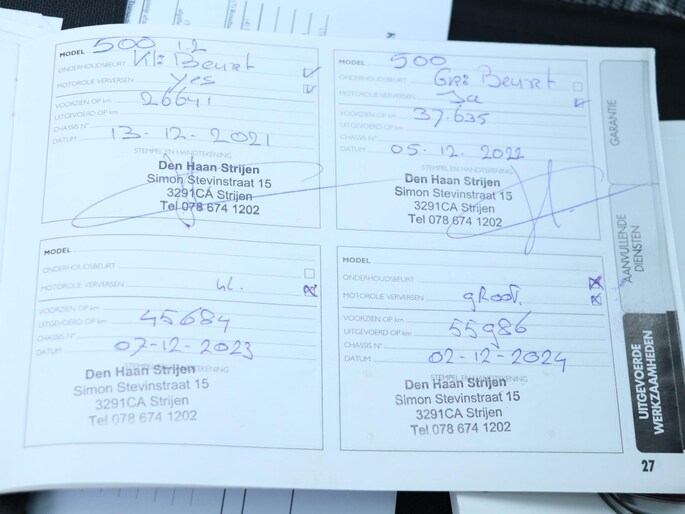 MODEL 500 1.2
ONDERHOUDSBEURT Kl: Beurt
MOTOROLIE VERVERSEN yes
VOORZIEN OP km 26641
UITGEVOERD OP km
CHASSIS N°
DATUM 13-12-2021
STEMPEL EN HANDTEKENING
Den Haan Strijen
Simon Stevinstraat 15
3291CA Strijen
Tel 078 674 1202
MODEL 500
ONDERHOUDSBEURT Gr: Beurt
MOTOROLIE VERVERSEN Ja
VOORZIEN OP km 37.635
UITGEVOERD OP km
CHASSIS N°
DATUM 05.12.2022
STEMPEL EN HANDTEKENING
Den Haan Strijen
Simon Stevinstraat 15
3291CA Strijen
Tel 078 674 1202
MODEL
ONDERHOUDSBEURT
MOTOROLIE VERVERSEN kl.
VOORZIEN OP km 45684
UITGEVOERD OP km
CHASSIS N°
DATUM 07-12-2023
STEMPEL EN HANDTEKENING
Den Haan Strijen
Simon Stevinstraat 15
3291CA Strijen
Tel 078 674 1202
MODEL
ONDERHOUDSBEURT
MOTOROLIE VERVERSEN gRooT.
VOORZIEN OP km 55986
UITGEVOERD OP km
CHASSIS N°
DATUM 02-12-2024
STEMPEL EN HANDTEKENING
Den Haan Strijen
Simon Stevinstraat 15
3291CA Strijen
Tel 078 674 1202
GARANTIE
AANVULLENDE
DIENSTEN
UITGEVOERDE
WERKZAAMHEDEN
27